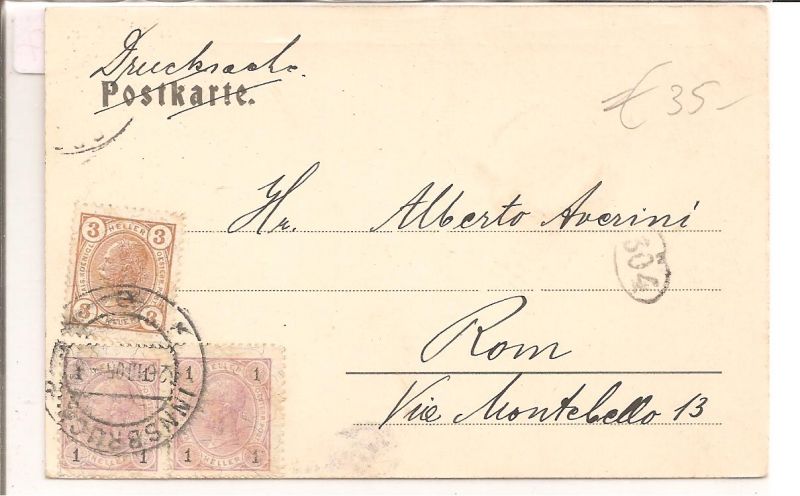 Drucksache
Postkarte.
€ 35-
Hr. Alberto Averini
304
Rom
Via Montebello 13
3 HELLER 3
3 HELLER 3
1 1
HELLER
1 1
1 HELLER 1
1 HELLER 1
INNSBRUCK